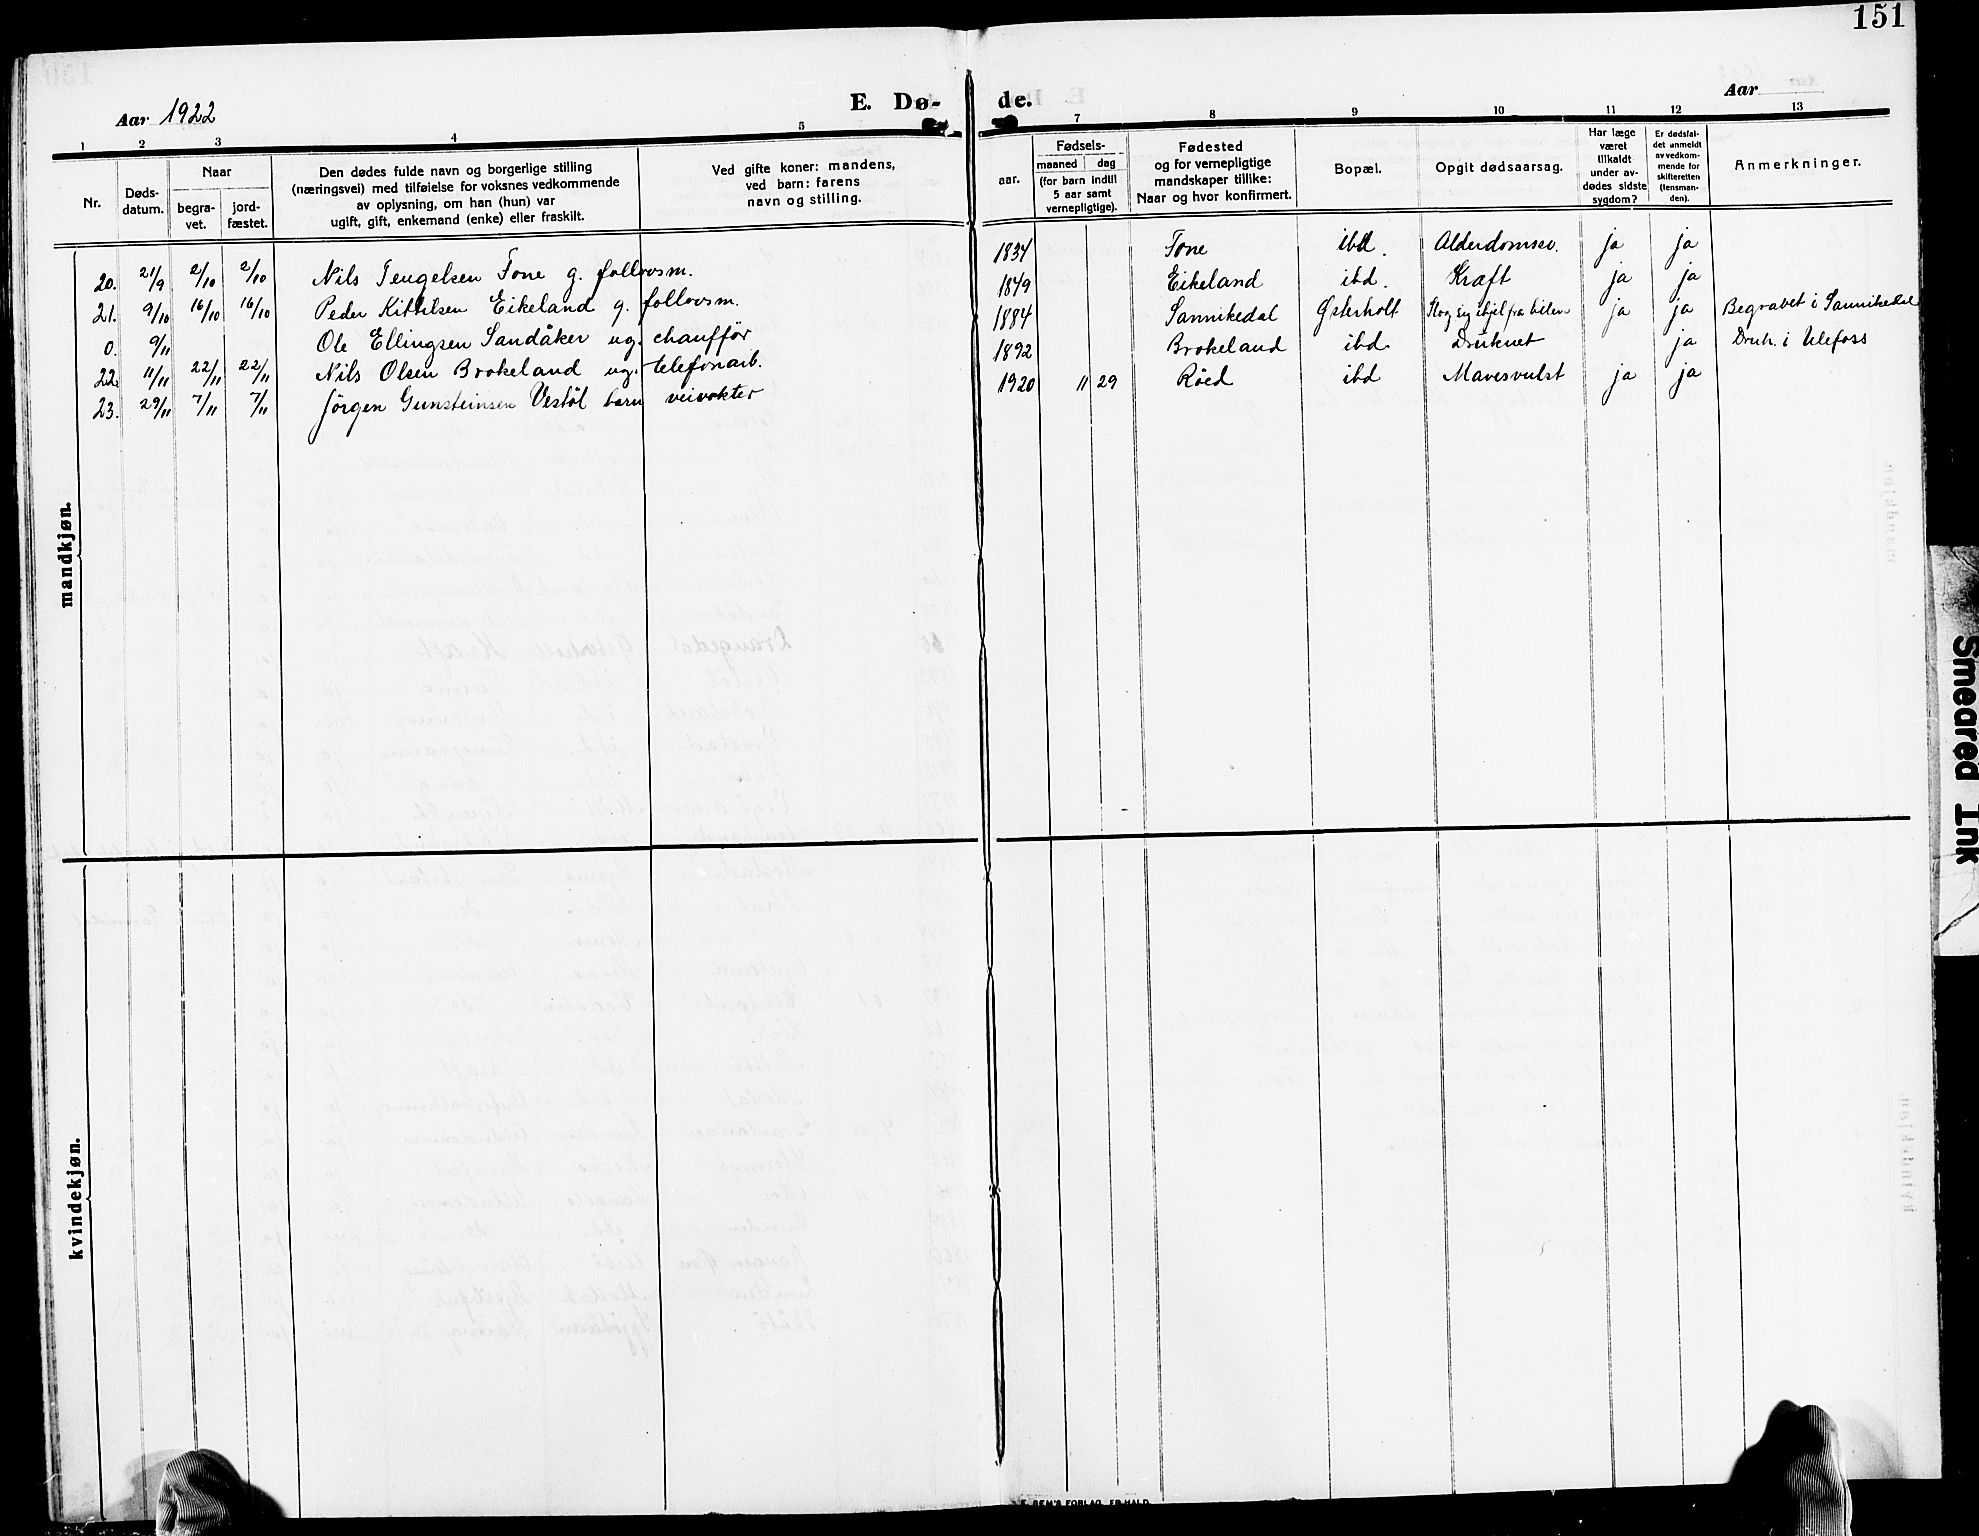 151
Aar 1922
E. Dø-
de.
Aar
1 2 3 4 5 7 8 9 10 11 12 13
Nr.
Døds-
datum.
Naar
begra-
vet.
jord-
fæstet.
Den dødes fulde navn og borgerlige stilling
(næringsvei) med tilføielse for voksnes vedkommende
av oplysning, om han (hun) var
ugift, gift, enkemand (enke) eller fraskilt.
Ved gifte koner: mandens,
ved barn: farens
navn og stilling.
Fødsels-
aar.
maaned dag
(for barn indtil
5 aar samt
vernepligtige).
Fødested
og for vernepligtige
mandskaper tillike:
Naar og hvor konfirmert.
Bopæl.
Opgit dødsaarsag.
Har læge
været
tilkaldt
under av-
dødes sidste
sygdom?
Er dødsfal-
det anmeldt
av vedkom-
mende for
skifteretten
(lensman-
den).
Anmerkninger.
mandkjøn.
20. 21/9 2/10 2/10 Nils Tengelsen Tone g. follovsm. 1834 Tone ibd. Alderdomssv. ja ja
21. 9/10 16/10 16/10 Peder Kittilsen Eikeland g. follovsm. 1849 Eikeland ibd. Kraft ja ja
0. 9/11 Ole Ellingsen Sandåker ug. chauffør 1884 Sannikedal Østerholt Slog sig ihjel fra bilen ja ja Begravet i Sannikedal
22. 11/11 22/11 22/11 Nils Olsen Brokeland ug. telefonarb. 1892 Brokeland ibd. Druknet ja Druk. i Ulefoss
23. 29/11 7/11 7/11 Jørgen Gunsteinsen Vestøl barn veivokter 1920 11 29 Røed ibd Mavesvulst ja ja
kvindekjøn.
Smeared Ink